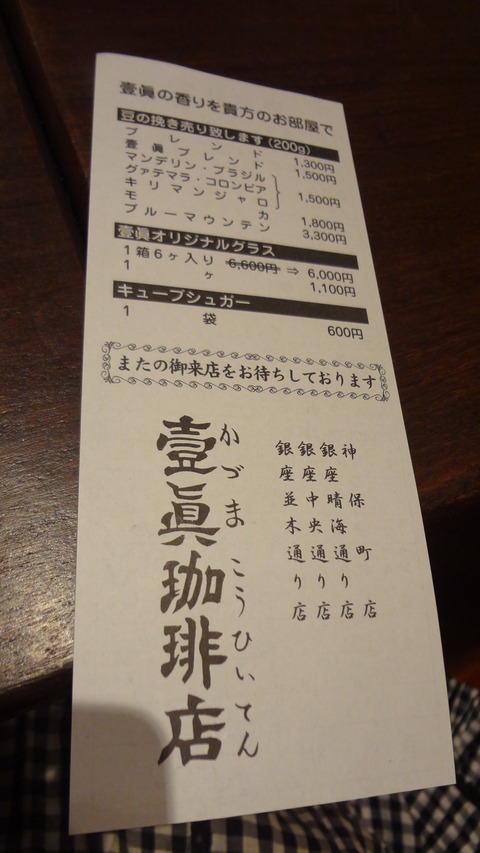 壹眞の香りを貴方のお部屋で
豆の挽き売り致します(200g)
ブレンド 1,300円
壹眞ブレンド 1,500円
マンデリン・ブラジル
グァテマラ・コロンビア
キリマンジャロ
1,500円
モカ 1,800円
ブルーマウンテン 3,300円
壹眞オリジナルグラス
1箱6ヶ入り 6,600円 ⇒ 6,000円
1ヶ 1,100円
キューブシュガー
1袋 600円
またの御来店をお待ちしております
神保町店
銀座晴海通り店
銀座中央通り店
銀座並木通り店
かづまこうひいてん
壹眞珈琲店